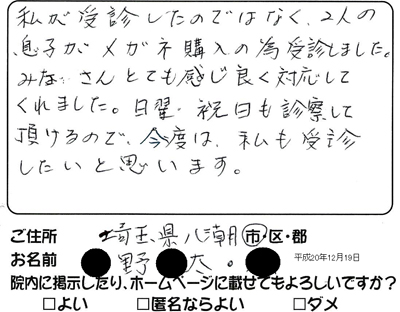 私が受診したのではなく、2人の
息子がメガネ購入の為受診しました。
みなさんとても感じ良く対応して
くれました。日曜・祝日も診察して
頂けるので、今度は、私も受診
したいと思います。
ご住所 埼玉県八潮市・区・郡
お名前 野 太。 平成20年12月19日
院内に掲示したり、ホームページに載せてもよろしいですか?
□よい □匿名ならよい □ダメ